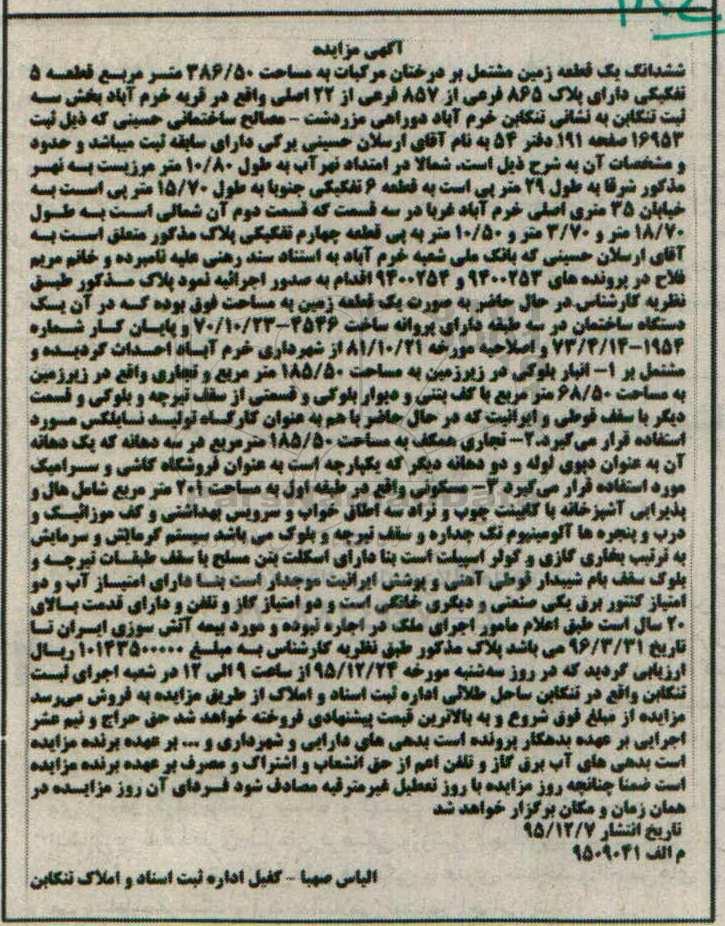 آگهی مزایده
ششدانگ یک قطعه زمین مشتمل بر درختان مرکبات به مساحت ۳۸۶/۵۰ متر مربع قطعه ۵
تفکیکی دارای پلاک ۸۶۵ فرعی از ۸۵۷ فرعی از ۲۲ اصلی واقع در قریه خرم آباد بخش سه
ثبت تنکابن به نشانی تنکابن خرم آباد دوراهی مزردشت - مصالح ساختمانی حسینی که ذیل ثبت
۱۶۹۵۳ صفحه ۱۹۱ دفتر ۵۴ به نام آقای ارسلان حسینی یرکی دارای سابقه ثبت میباشد و حدود
و مشخصات آن به شرح ذیل است. شمالا در امتداد نهرآب به طول ۱۰/۸۰ متر مرزیست به نهر
مذکور شرقا به طول ۲۹ متر پی است به قطعه ۶ تفکیکی جنوبا به طول ۱۵/۷۰ متر پی است به
خیابان ۳۵ متری اصلی خرم آباد غربا در سه قسمت که قسمت دوم آن شمالی است به طول
۱۸/۷۰ متر و ۳/۷۰ متر و ۱۰/۵۰ متر به پی قطعه چهارم تفکیکی پلاک مذکور متعلق است به
آقای ارسلان حسینی که بانک ملی شعبه خرم آباد به استناد سند رهنی علیه نامبرده و خانم مریم
فلاح در پرونده های ۹۴۰۰۲۵۳ و ۹۴۰۰۲۵۴ اقدام به صدور اجرائیه نمود پلاک مذکور طبق
نظریه کارشناس.در حال حاضر به صورت یک قطعه زمین به مساحت فوق بوده که در آن یک
دستگاه ساختمان در سه طبقه دارای پروانه ساخت ۴۵۴۶-۷۰/۱۰/۲۳ و پایان کار شماره
۱۹۵۴-۷۳/۴/۱۴ و اصلاحیه مورخه ۸۱/۱۰/۲۱ از شهرداری خرم آباد احداث گردیده و
مشتمل بر ۱- انبار بلوکی در زیرزمین به مساحت ۱۸۵/۵۰ متر مربع و تجاری واقع در زیرزمین
به مساحت ۶۸/۵۰ متر مربع با کف بتنی و دیوار بلوکی و قسمتی از سقف تیرچه و بلوکی و قسمت
دیگر با سقف قوطی و ایرانیت که در حال حاضر با هم به عنوان کارگاه تولید نایلکس مورد
استفاده قرار می‌گیرد.۲- تجاری همکف به مساحت ۱۸۵/۵۰ مترمربع در سه دهانه که یک دهانه
آن به عنوان دپوی لوله و دو دهانه دیگر که یکپارچه است به عنوان فروشگاه کاشی و سرامیک
مورد استفاده قرار می‌گیرد ۳- مسکونی واقع در طبقه اول به مساحت ۲۰۱ متر مربع شامل هال و
پذیرایی آشپزخانه با کابینت چوب و نراد سه اطاق خواب و سرویس بهداشتی و کف موزائیک و
درب و پنجره ها آلومینیوم تک جداره و سقف تیرچه و بلوک می باشد سیستم گرمایش و سرمایش
به ترتیب بخاری گازی و کولر اسپیلت است بنا دارای اسکلت بتن مسلح با سقف طبقات تیرچه و
بلوک سقف بام شیبدار قوطی آهنی و پوشش ایرانیت موجدار است بنا دارای امتیاز آب و دو
امتیاز کنتور برق یکی صنعتی و دیگری خانگی است و دو امتیاز گاز و تلفن و دارای قدمت بالای
۲۰ سال است طبق اعلام مامور اجرای ملک در اجاره نبوده و مورد بیمه آتش سوزی ایران تا
تاریخ ۹۶/۳/۳۱ می باشد پلاک مذکور طبق نظریه کارشناس به مبلغ ۱۰۱۴۳۵۰۰۰۰۰ ریال
ارزیابی گردید که در روز سه‌شنبه مورخه ۹۵/۱۲/۲۴ از ساعت ۹ الی ۱۲ در شعبه اجرای ثبت
تنکابن واقع در تنکابن ساحل طلائی اداره ثبت اسناد و املاک از طریق مزایده به فروش می‌رسد
مزایده از مبلغ فوق شروع و به بالاترین قیمت پیشنهادی فروخته خواهد شد حق حراج و نیم عشر
اجرایی بر عهده بدهکار پرونده است بدهی های دارایی و شهرداری و ... بر عهده برنده مزایده
است بدهی های آب برق گاز و تلفن اعم از حق انشعاب و اشتراک و مصرف بر عهده برنده مزایده
است ضمنا چنانچه روز مزایده با روز تعطیل غیرمترقبه مصادف شود فردای آن روز مزایده در
همان زمان و مکان برگزار خواهد شد
تاریخ انتشار ۹۵/۱۲/۷
م الف ۹۵۰۹۰۴۱
الیاس صهبا - کفیل اداره ثبت اسناد و املاک تنکابن